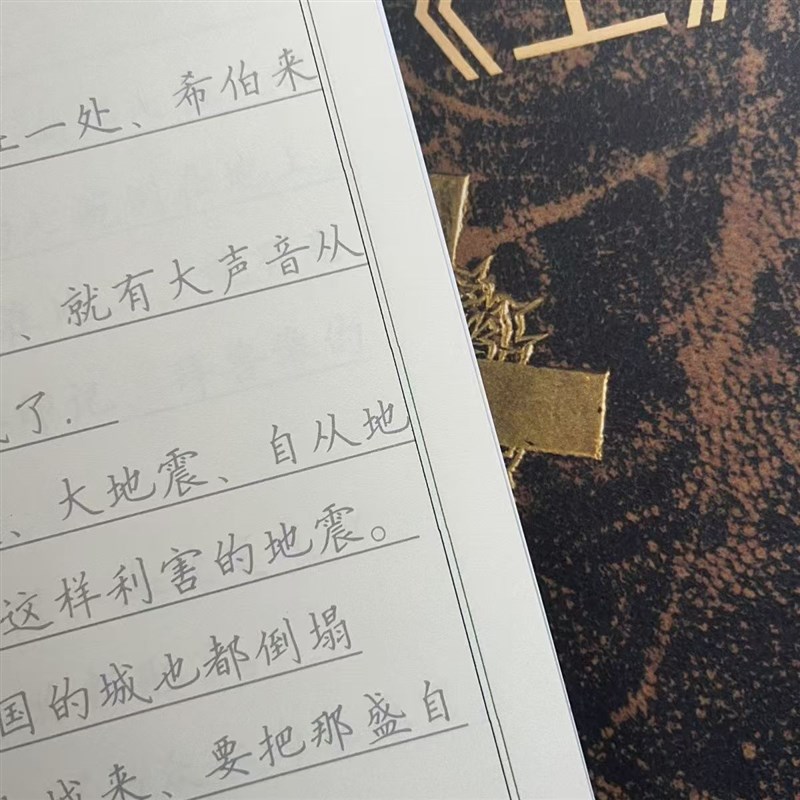 一处、希伯来
、就有大声音从
了.
、大地震、自从地
这样利害的地震。
国的城也都倒塌
来、要把那盛自
《
》